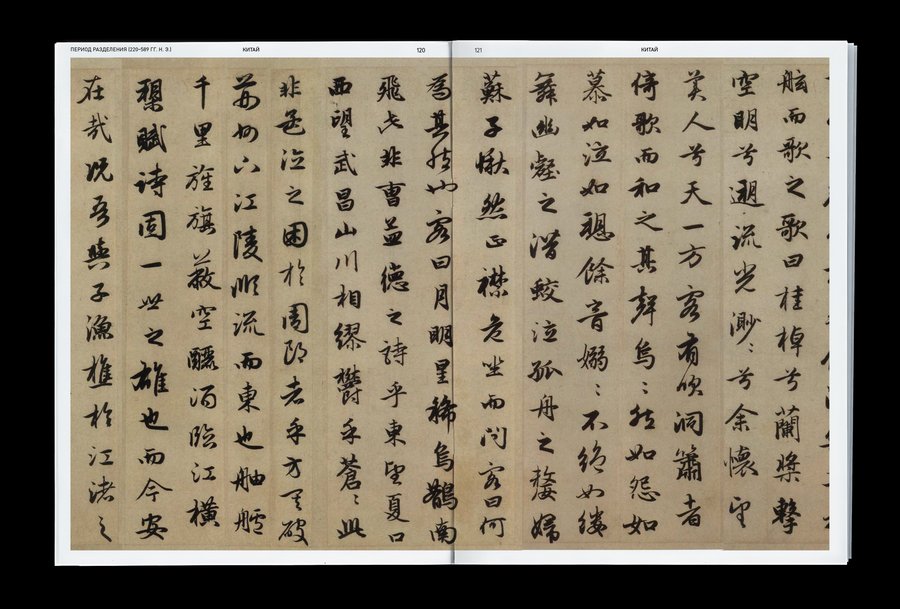 ПЕРИОД РАЗДЕЛЕНИЯ (220–589 ГГ. Н. Э.)
КИТАЙ
120
121
КИТАЙ
舷而歌之歌曰桂棹兮蘭槳擊
空明兮遡流光渺〻兮余懷望
美人兮天一方客有吹洞簫者
倚歌而和之其聲烏〻然如怨如
慕如泣如愬餘音嫋〻不絕如縷
舞幽壑之潛蛟泣孤舟之嫠婦
蘇子愀然正襟危坐而問客曰何
為其然也客曰月明星稀烏鵲南
飛此非曹孟德之詩乎東望夏口
西望武昌山川相繆鬱乎蒼〻此
非孟德之困於周郎者乎方其破
荊州下江陵順流而東也舳艫
千里旌旗蔽空釃酒臨江橫
槊賦詩固一世之雄也而今安
在哉況吾與子漁樵於江渚之